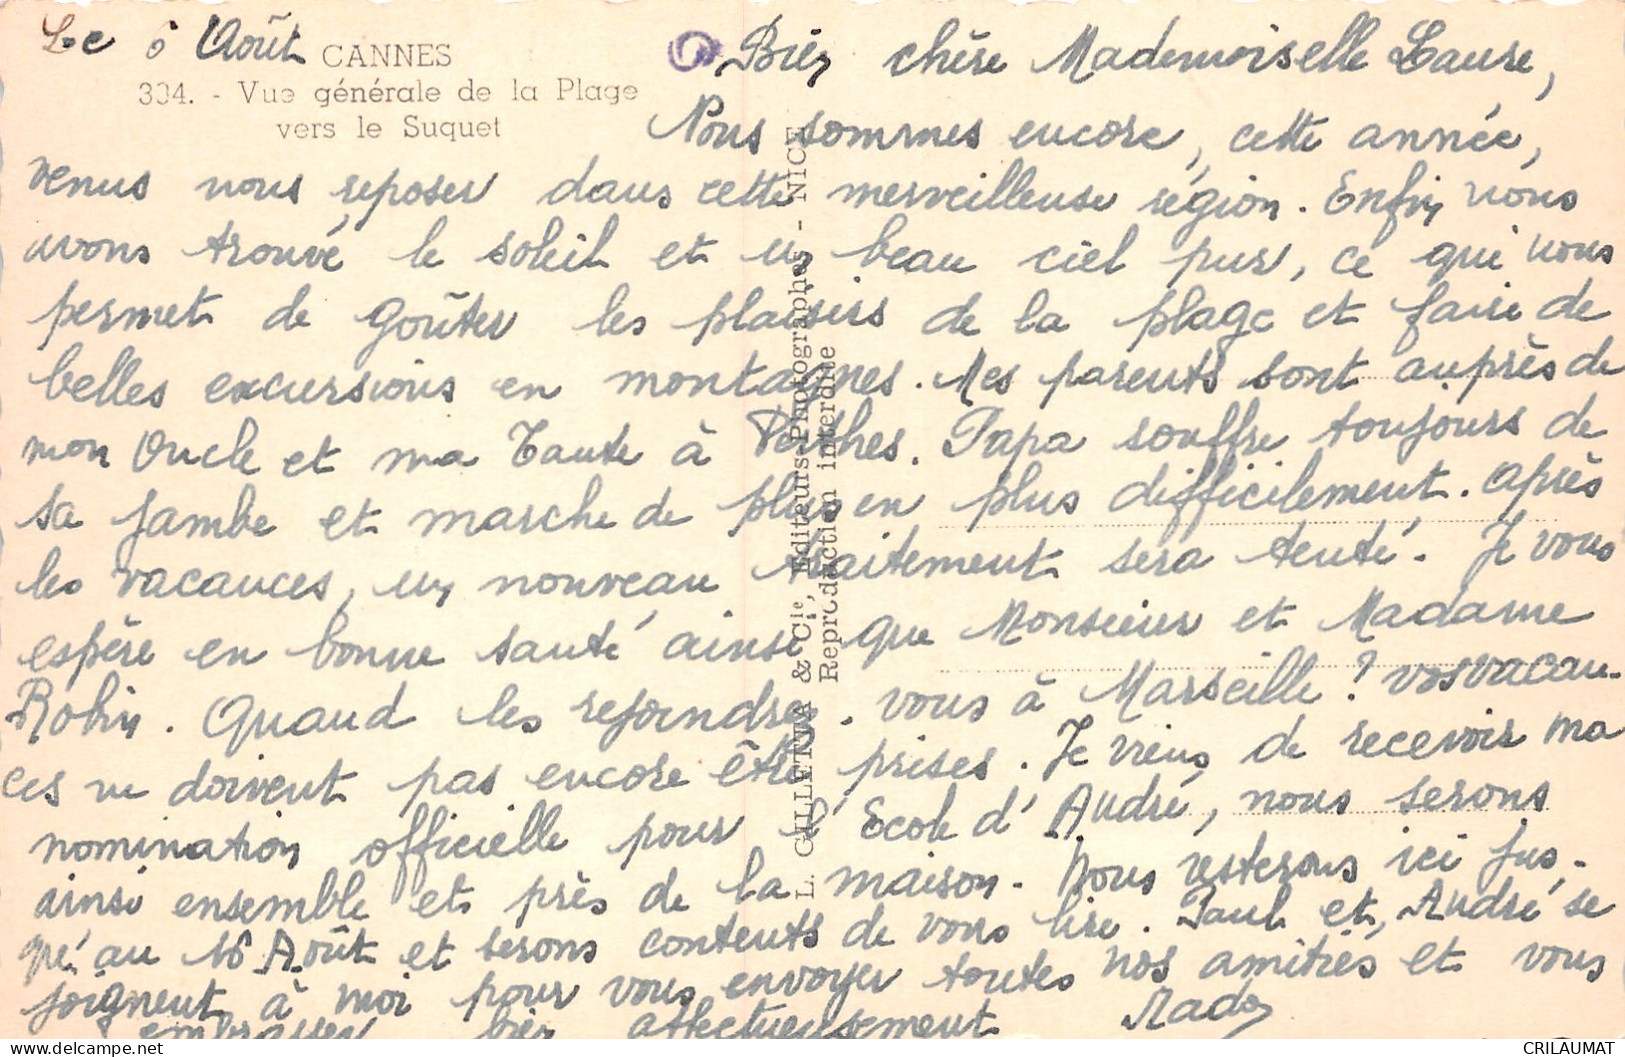 Le 6 Août
CANNES
334. - Vue générale de la Plage
vers le Suquet
Bien chère Mademoiselle Laure,
Nous sommes encore, cette année,
venus nous reposer dans cette merveilleuse région. Enfin nous
avons trouvé le soleil et un beau ciel pur, ce qui nous
permet de goûter les plaisirs de la plage et faire de
belles excursions en montagnes. Mes parents sont auprès de
mon Oncle et ma Tante à Perthes. Papa souffre toujours de
sa jambe et marche de plus en plus difficilement. après
les vacances, un nouveau traitement sera tenté. Je vous
espère en bonne santé ainsi que Monsieur et Madame
Robin. Quand les rejoindrez-vous à Marseille ? vos vacan-
ces ne doivent pas encore être prises. Je viens de recevoir ma
nomination officielle pour l'Ecole d'André, nous serons
ainsi ensemble et près de la maison. Nous resterons ici jus-
qu'au 16 Août et serons contents de vous lire. Paul et André se
joignent à moi pour vous envoyer toutes nos amitiés et vous
embrasser bien affectueusement
L. GILLETTA & Cie, Editeurs-Photographes - NICE
Reproduction interdite
CRILAUMAT